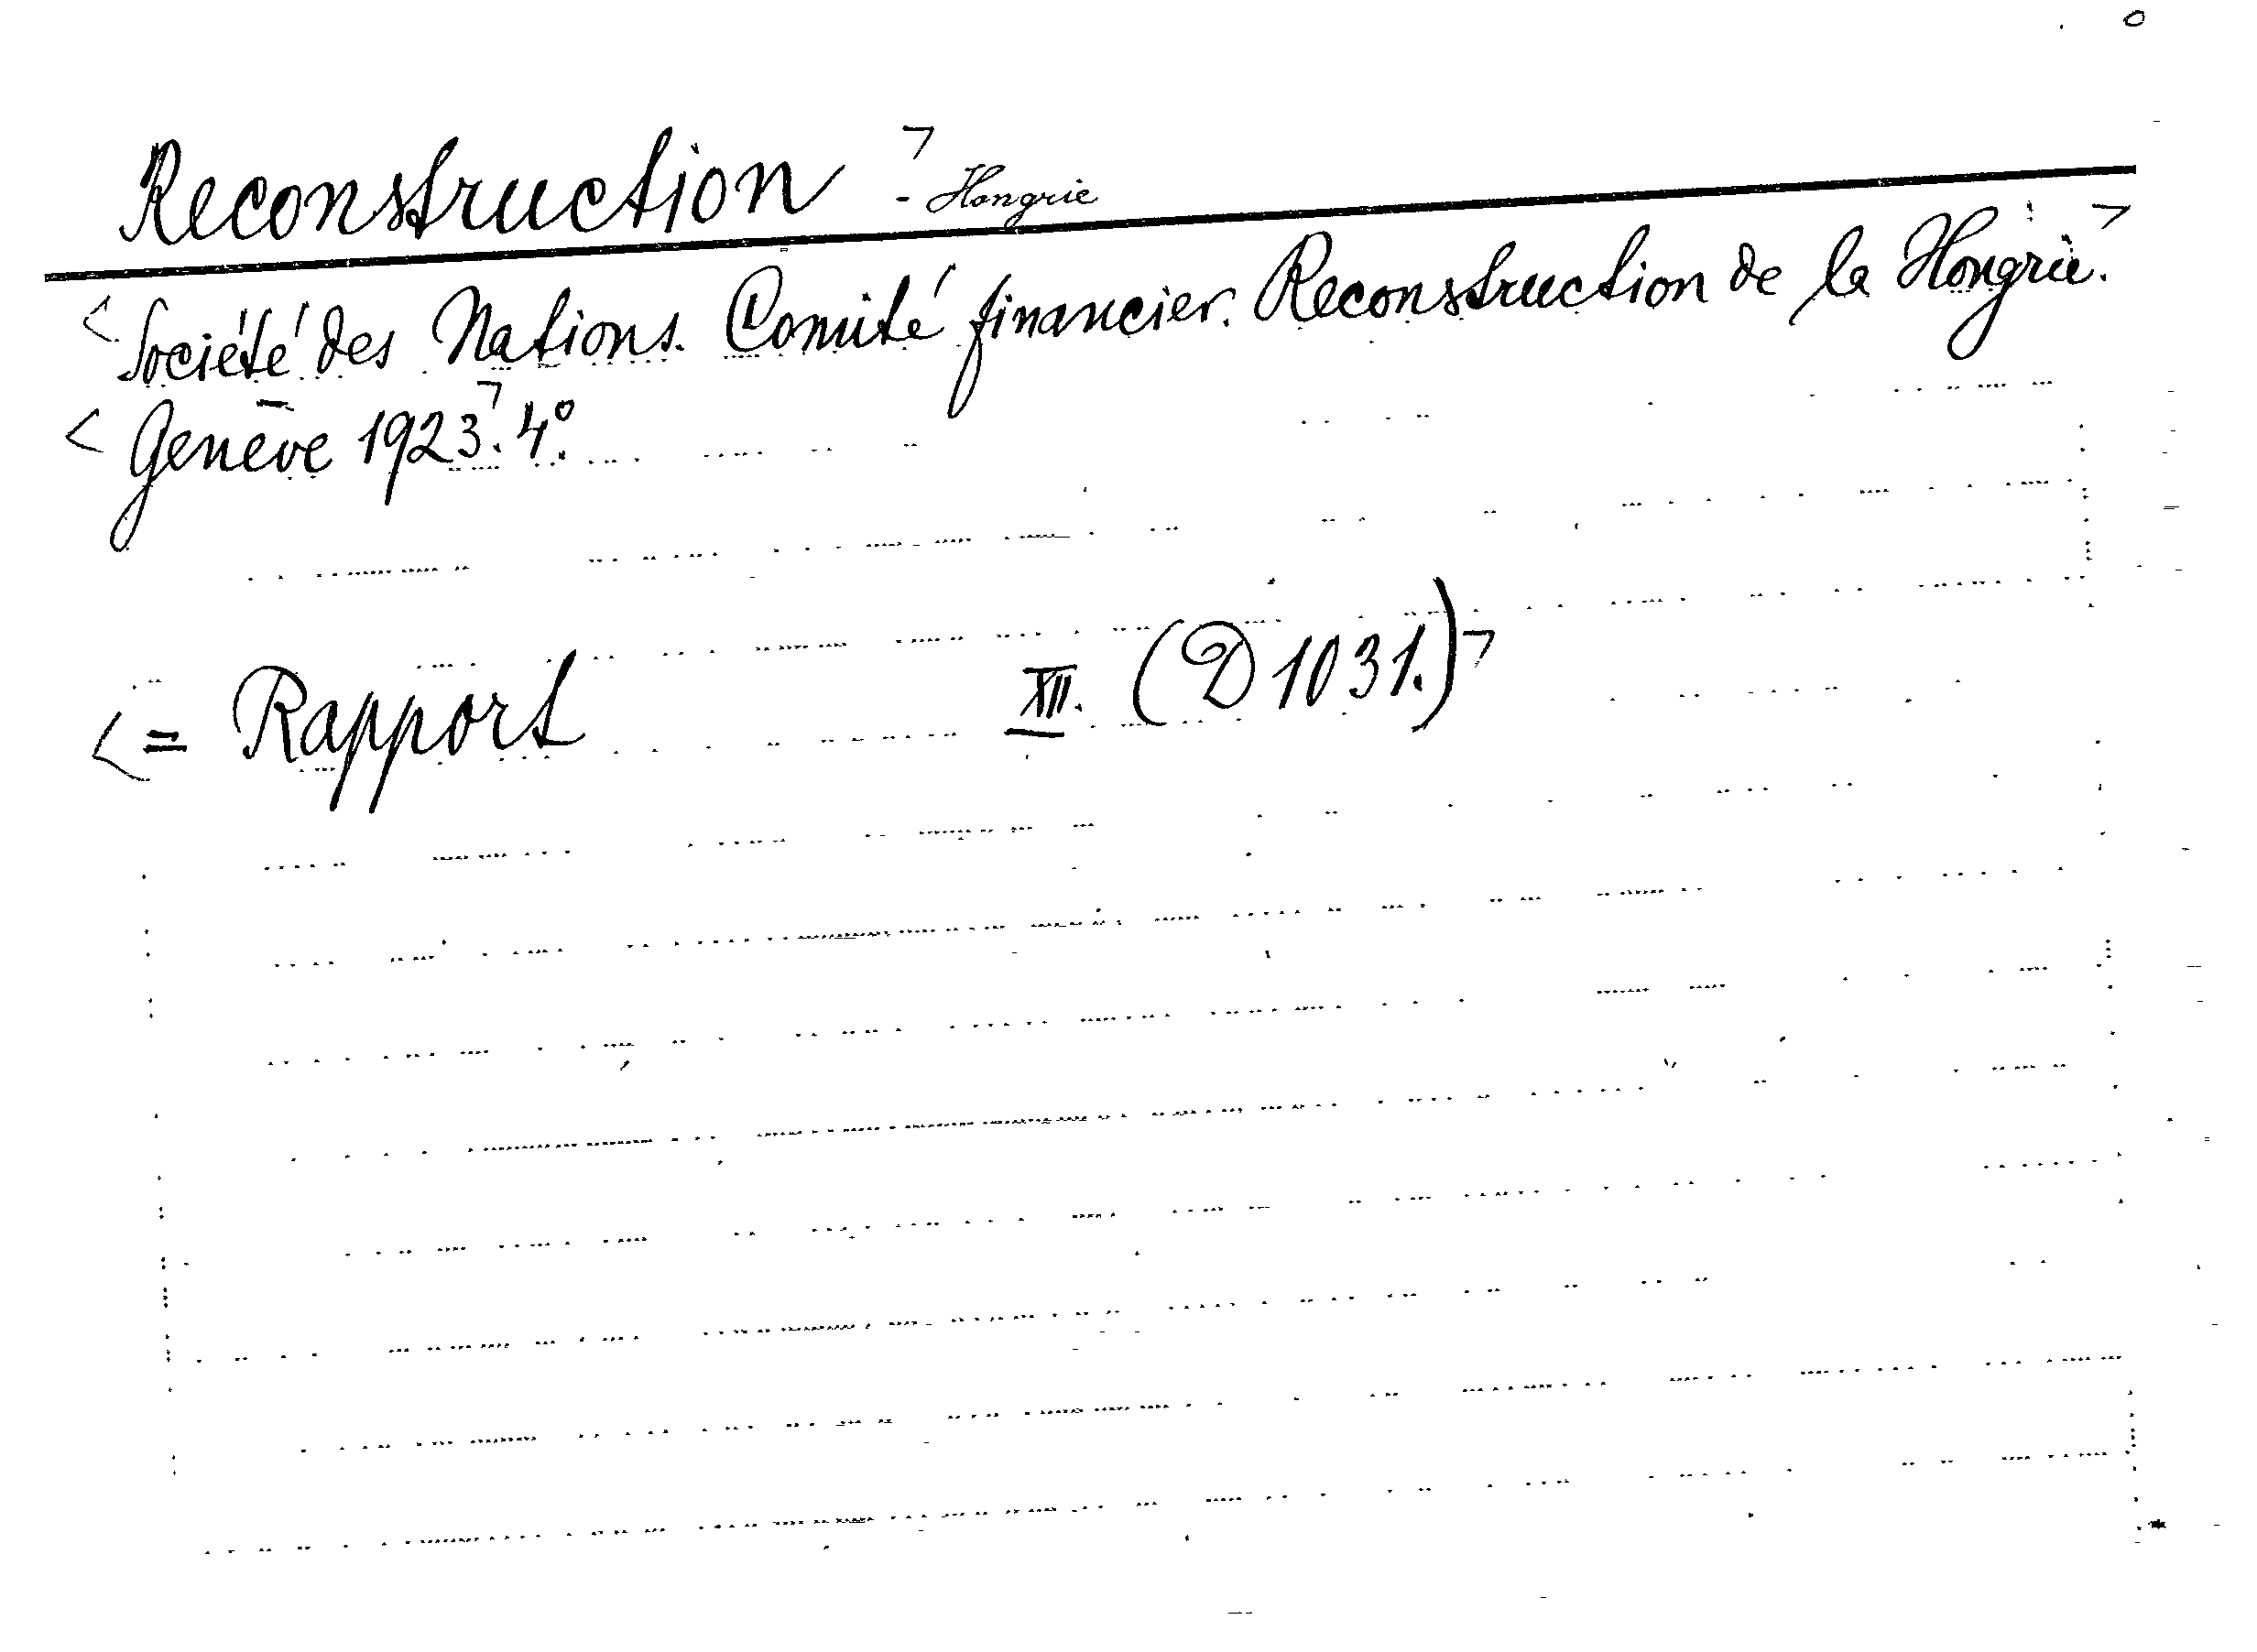 Reconstruction - Hongrie
Société des Nations. Comité financier. Reconstruction de la Hongrie.
Genève 1923. 4º.
= Rapport XII. (D 1031.)